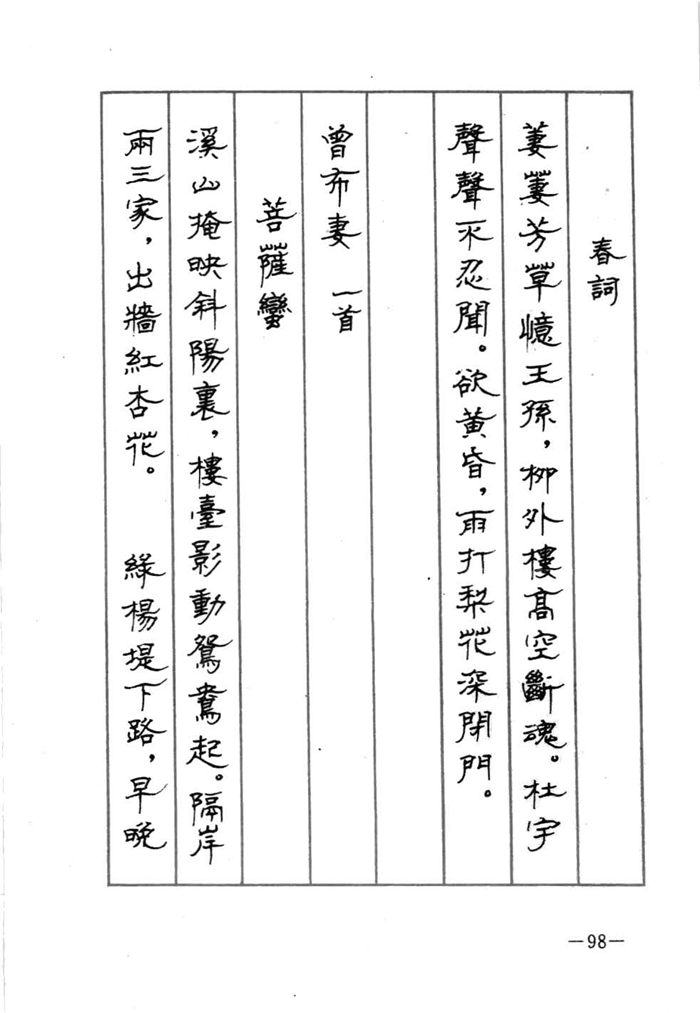 春詞
萋萋芳草憶王孫，柳外樓高空斷魂。杜宇
聲聲不忍聞。欲黃昏，雨打梨花深閉門。
曾布妻 一首
菩薩蠻
溪山掩映斜陽裏，樓臺影動鴛鴦起。隔岸
兩三家，出牆紅杏花。 綠楊堤下路，早晚
—98—